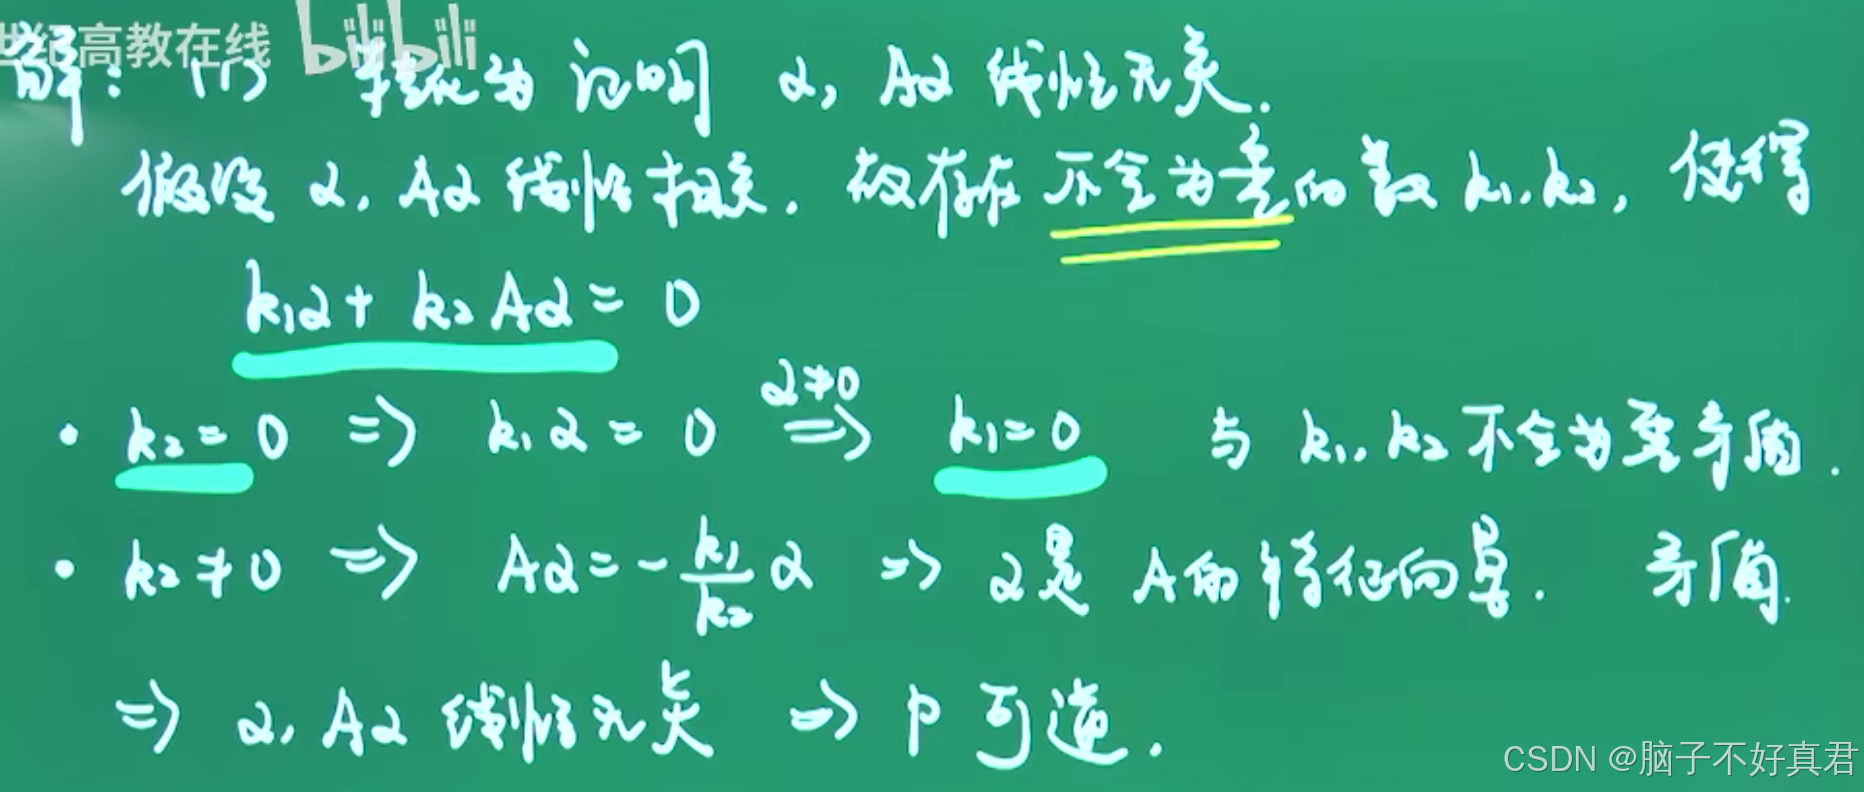 世纪高教在线 bilibili
解: (1) 转化为证明 α, Aα 线性无关.
假设 α, Aα 线性相关. 故存在不全为零的数 k₁, k₂, 使得
k₁α + k₂Aα = 0
· k₂ = 0 ⇒ k₁α = 0 α≠0 ⇒ k₁ = 0 与 k₁, k₂ 不全为零矛盾.
· k₂ ≠ 0 ⇒ Aα = -k₁/k₂ α ⇒ α是 A的特征向量. 矛盾.
⇒ α, Aα 线性无关 ⇒ P可逆.
CSDN @脑子不好真君